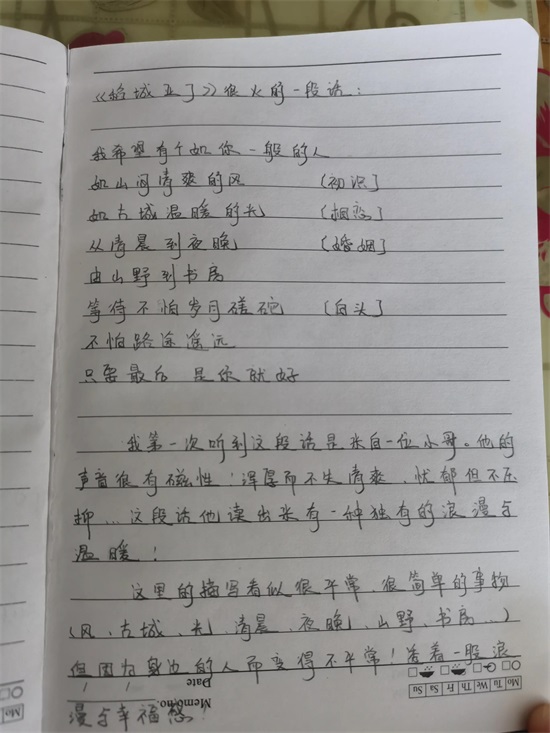 《稻城亚丁》很火的一段话：
我希望有个如你一般的人
如山间清爽的风 [初识]
如古城温暖的光 [相恋]
从清晨到夜晚 [婚姻]
由山野到书房
等待不怕岁月磋砣 [白头]
不怕路途遥远
只要最后是你就好
我第一次听到这段话是来自一位小哥。他的
声音很有磁性：浑厚而不失清爽、忧郁但不压
抑...这段话他读出来有一种独有的浪漫与
温暖！
这里的描写看似很平常、很简单的事物
（风、古城、光、清晨、夜晚、山野、书房...）
但因为身边的人而变得不平常！有着一股浪
漫与幸福
Memo No.
Date
Mo Tu We Th Fr Sa Su
Mo